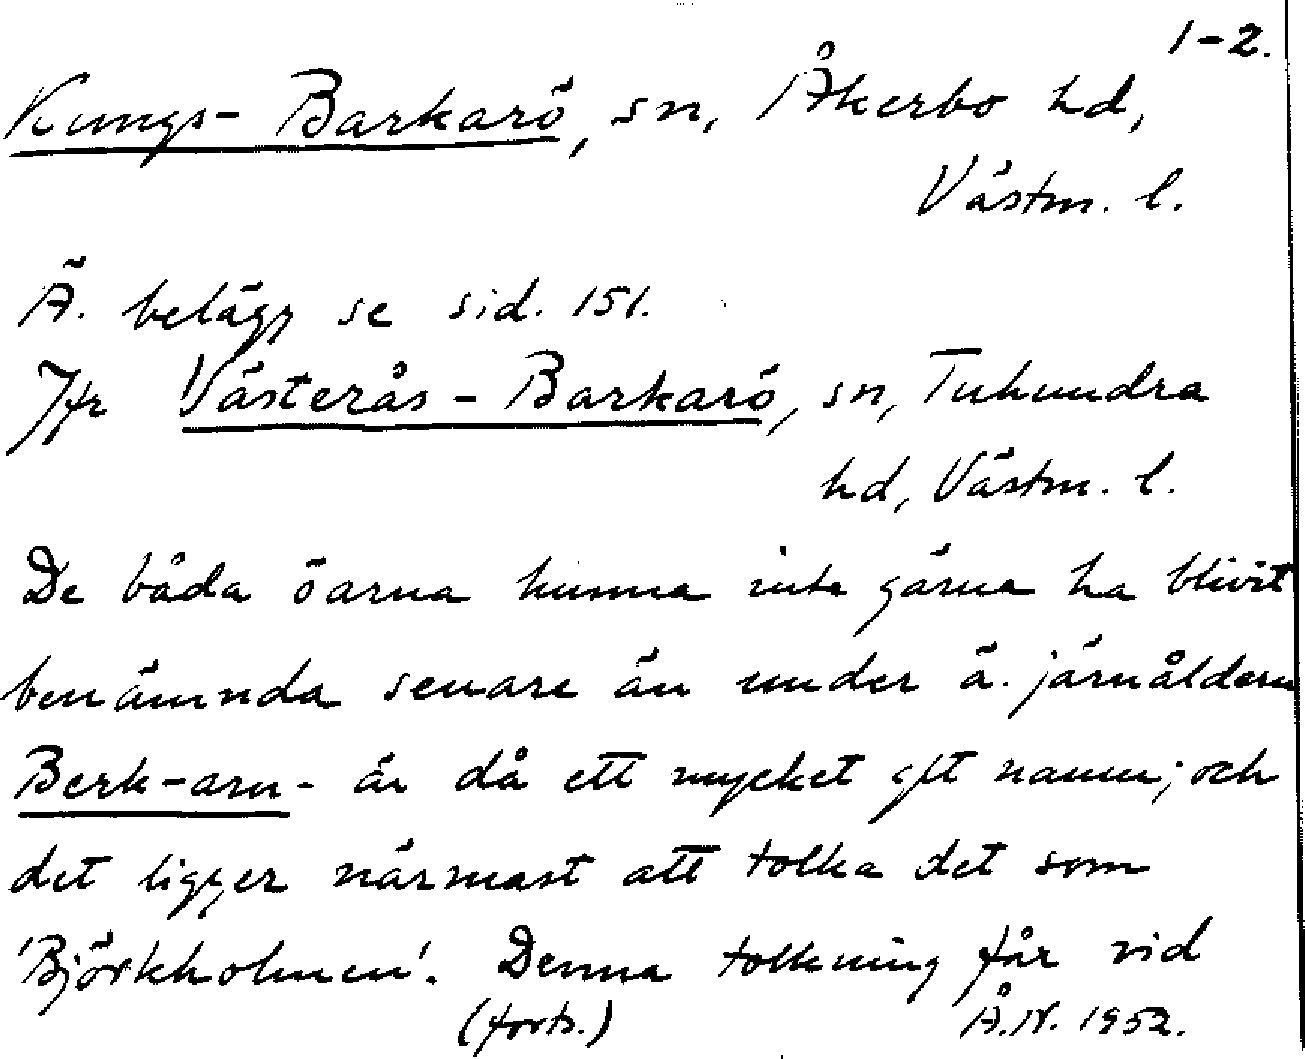 1-2.
Kungs-Barkarö, sn, Åkerbo hd,
Västm. l.
Ä. belägg se sid. 151.
Jfr Västerås-Barkarö, sn, Tuhundra
hd, Västm. l.
De båda öarna kunna inte gärna ha blivit
benämnda senare än under ä. järnåldern
Berk-arn- är då ett mycket gt namn; och
det ligger närmast att tolka det som
'Björkholmen'. Denna tolkning får vid
(forts.) Å.N. 1952.